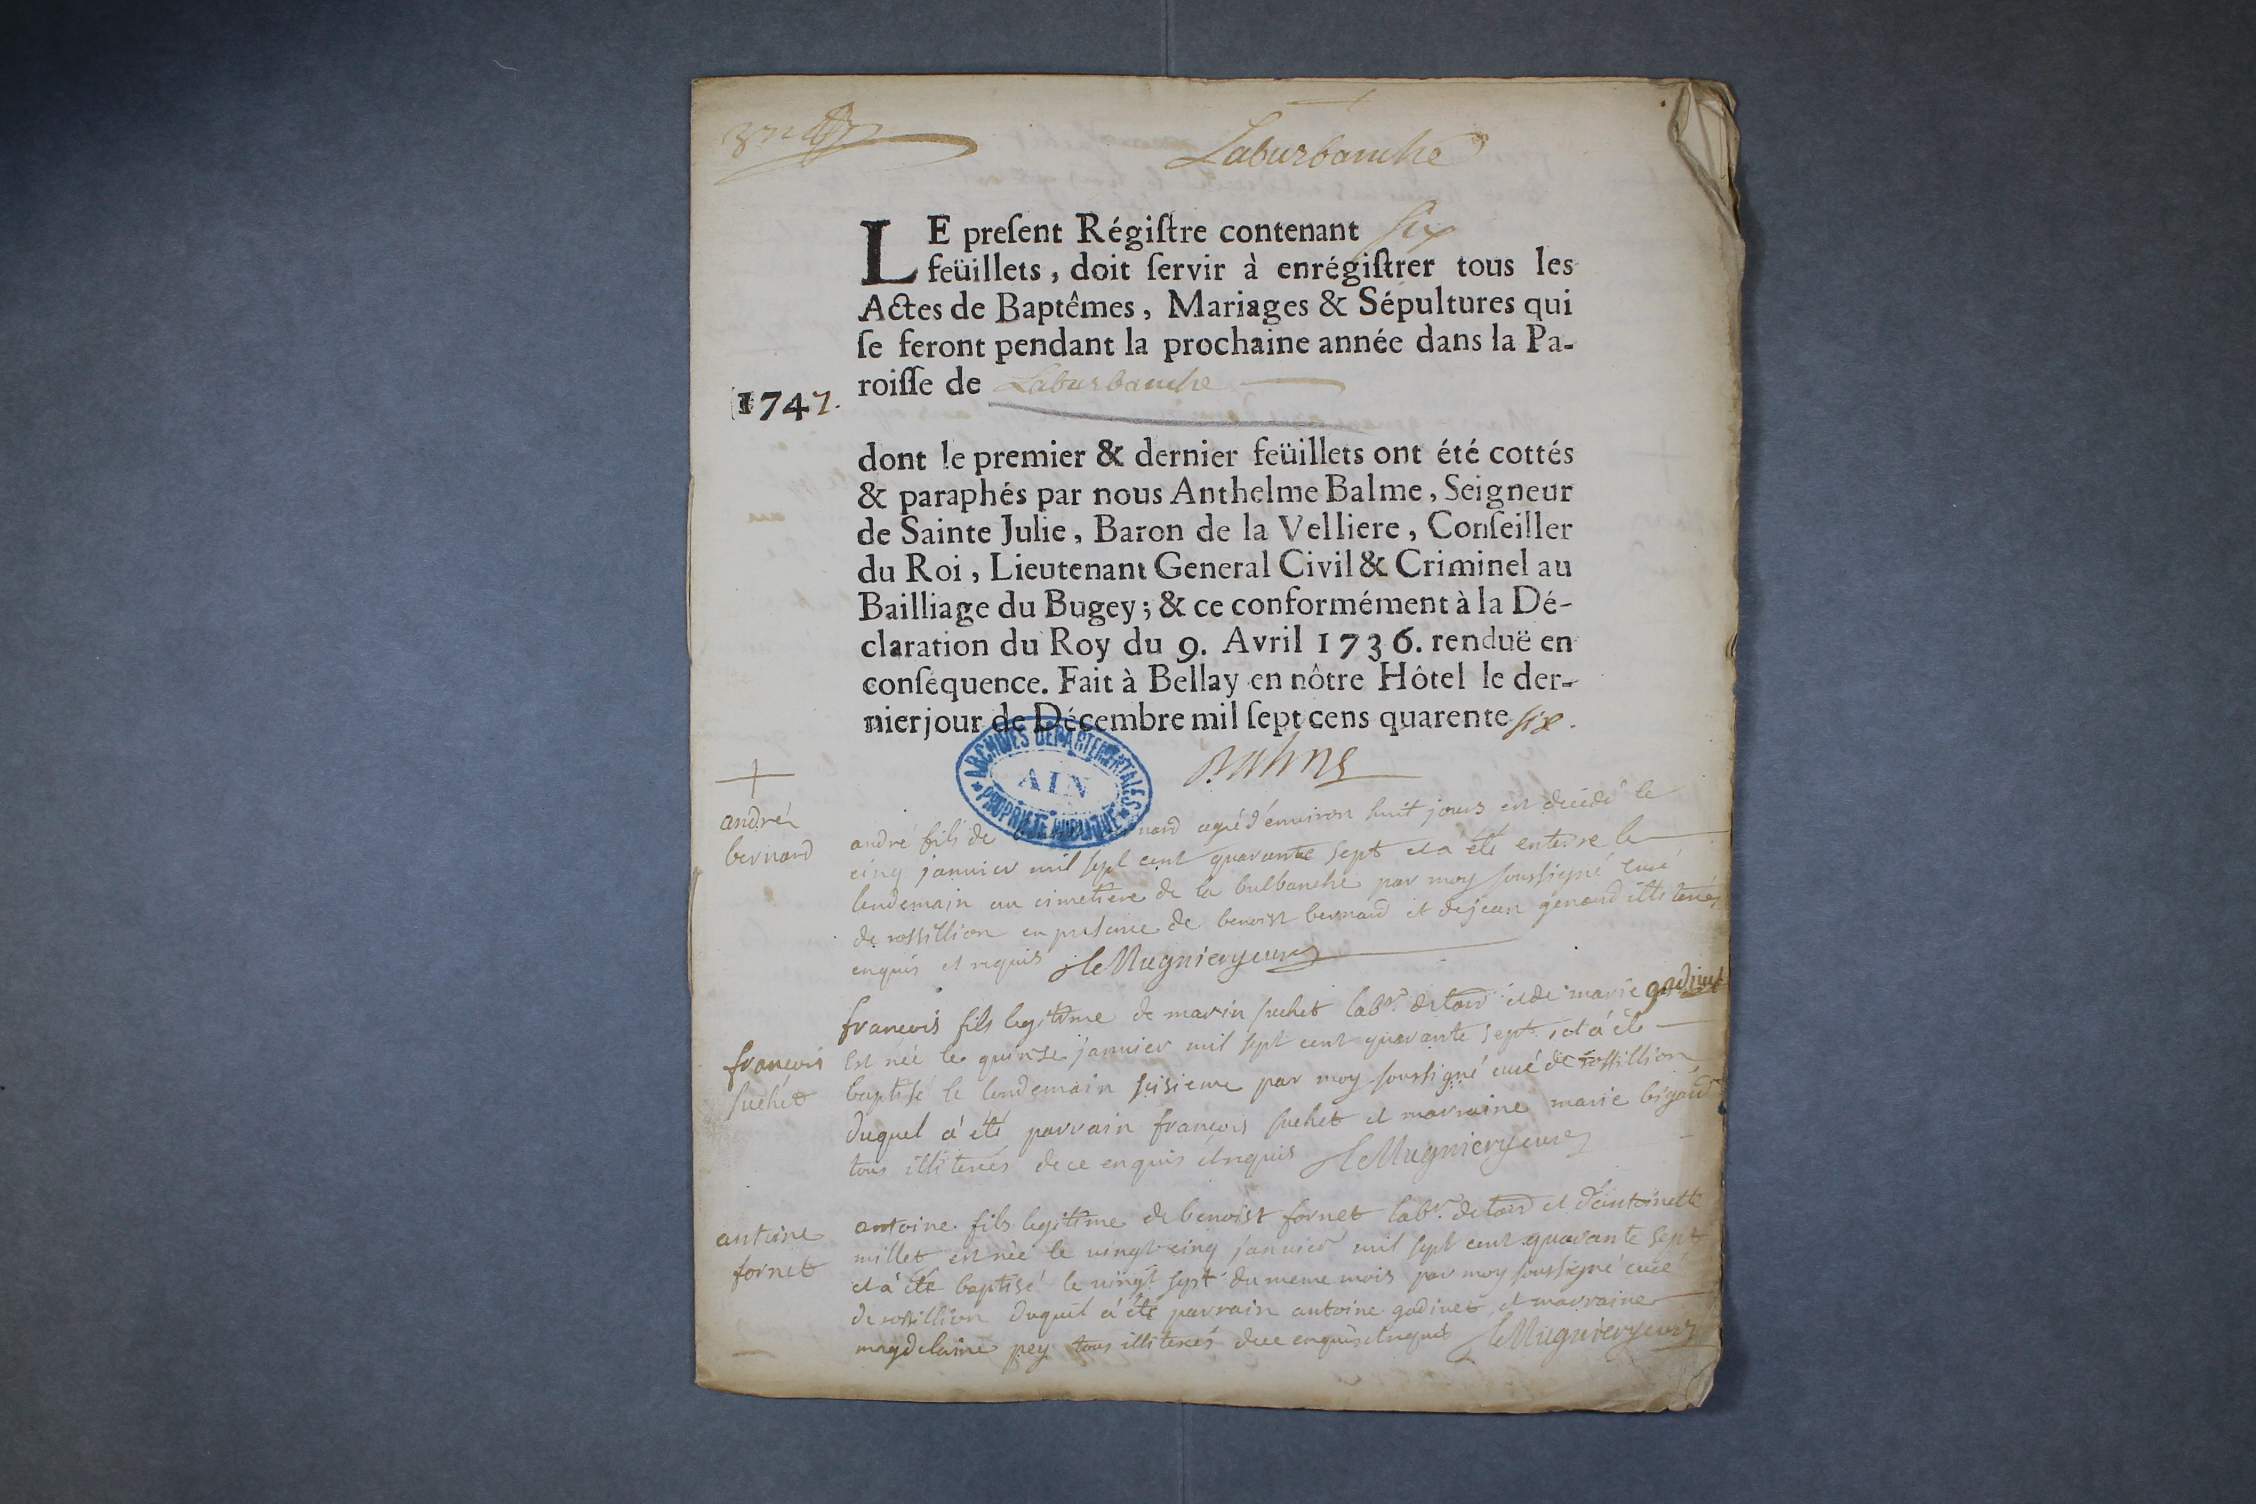 Laburbanche
LE preſent Régiſtre contenant six
feüillets, doit ſervir à enrégiſtrer tous les
Actes de Baptêmes, Mariages & Sépultures qui
ſe feront pendant la prochaine année dans la Pa-
roiſſe de Laburbanche
1747.
dont le premier & dernier feüillets ont été cottés
& paraphés par nous Anthelme Balme, Seigneur
de Sainte Julie, Baron de la Velliere, Conſeiller
du Roi, Lieutenant General Civil & Criminel au
Bailliage du Bugey; & ce conformément à la Dé-
claration du Roy du 9. Avril 1736. renduë en
conſéquence. Fait à Bellay en nôtre Hôtel le der-
nier jour de Décembre mil ſept cens quarente six.
ARCHIVES DEPARTEMENTALES
AIN
PROPRIETE PUBLIQUE
andré
bernard
andré fils de agé d'environ huit jours est decedé le
cinq janvier mil sept cent quarante sept et a été enterre le
lendemain au cimetiere de la bulbanche par moy soussigné curé
de rossillion en presence de benoist bernard et de jean genand illiterés
enquis et requis Mugnier curé
françois
suchet
françois fils legitime de marin suchet lab.r et de marie godinet
est née le quinze janvier mil sept cent quarante sept et a été
baptisé le lendemain seisieme par moy soussigné curé de rossillion
duquel a été parrain françois suchet et marraine marie
tous illiterés de ce enquis et requis Mugnier curé
antoine
fornet
antoine fils legitime de benoist fornet lab.r et d'antoinette
millet est née le vingt cinq janvier mil sept cent quarante sept
et a été baptisé le vingt sept du meme mois par moy soussigné curé
de rossillion duquel a été parrain antoine godinet et marraine
magdelaine pey tous illiterés de ce enquis et requis Mugnier curé